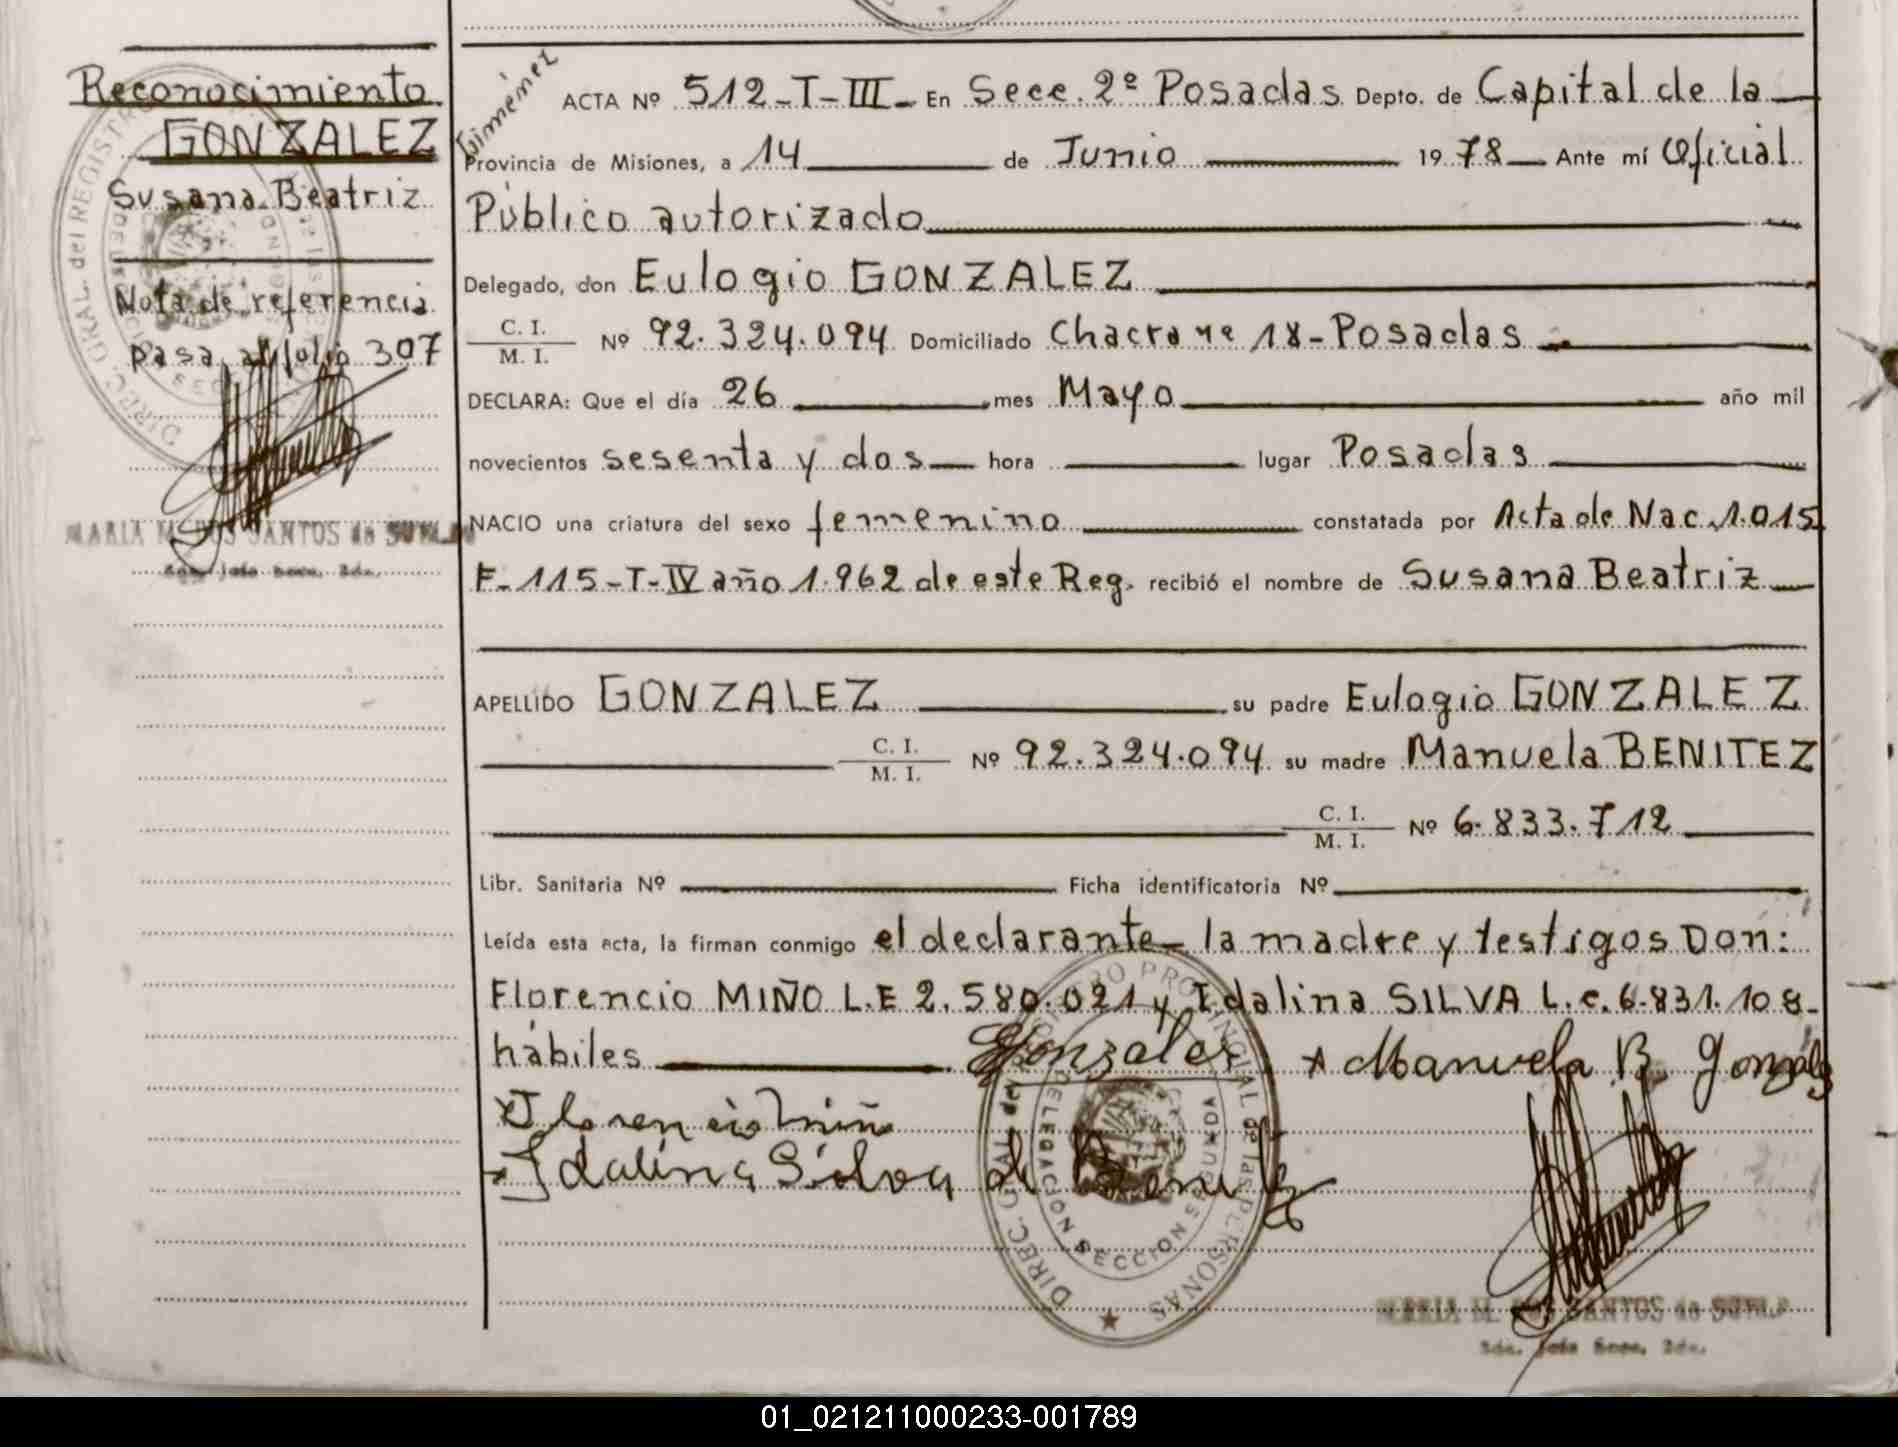 Reconocimiento
GONZALEZ
Susana Beatriz
Nota de referencia
pasa al folio 307
MARIA M. DOS SANTOS de
Jiménez
ACTA Nº 512-T-III- En Secc. 2º Posadas Depto. de Capital de la
Provincia de Misiones, a 14 de Junio 1978 Ante mí Oficial
Público autorizado
Delegado, don Eulogio GONZALEZ
C. I.
M. I. Nº 92.324.094 Domiciliado Chacra 18-Posadas
DECLARA: Que el día 26 mes Mayo año mil
novecientos sesenta y dos hora lugar Posadas
NACIO una criatura del sexo femenino constatada por Acta de Nac. 1.015
F-115-T-IV año 1.962 de este Reg. recibió el nombre de Susana Beatriz
APELLIDO GONZALEZ su padre Eulogio GONZALEZ
C. I.
M. I. Nº 92.324.094 su madre Manuela BENITEZ
C. I.
M. I. Nº 6.833.712
Libr. Sanitaria Nº Ficha identificatoria Nº
Leída esta acta, la firman conmigo el declarante- la madre y testigos Don:
Florencio MIÑO L.E 2.580.021 y Idalina SILVA L.c. 6.831.108-
hábiles Gonzalez Manuela B. Gonzalez
Florencio Miño
Idalina Silva d Benitez
DIREC. GRAL. del REGISTRO PROVINCIAL de las PERSONAS
DELEGACIÓN SECCION SEGUNDA
MARIA M. DOS SANTOS de
01_021211000233-001789